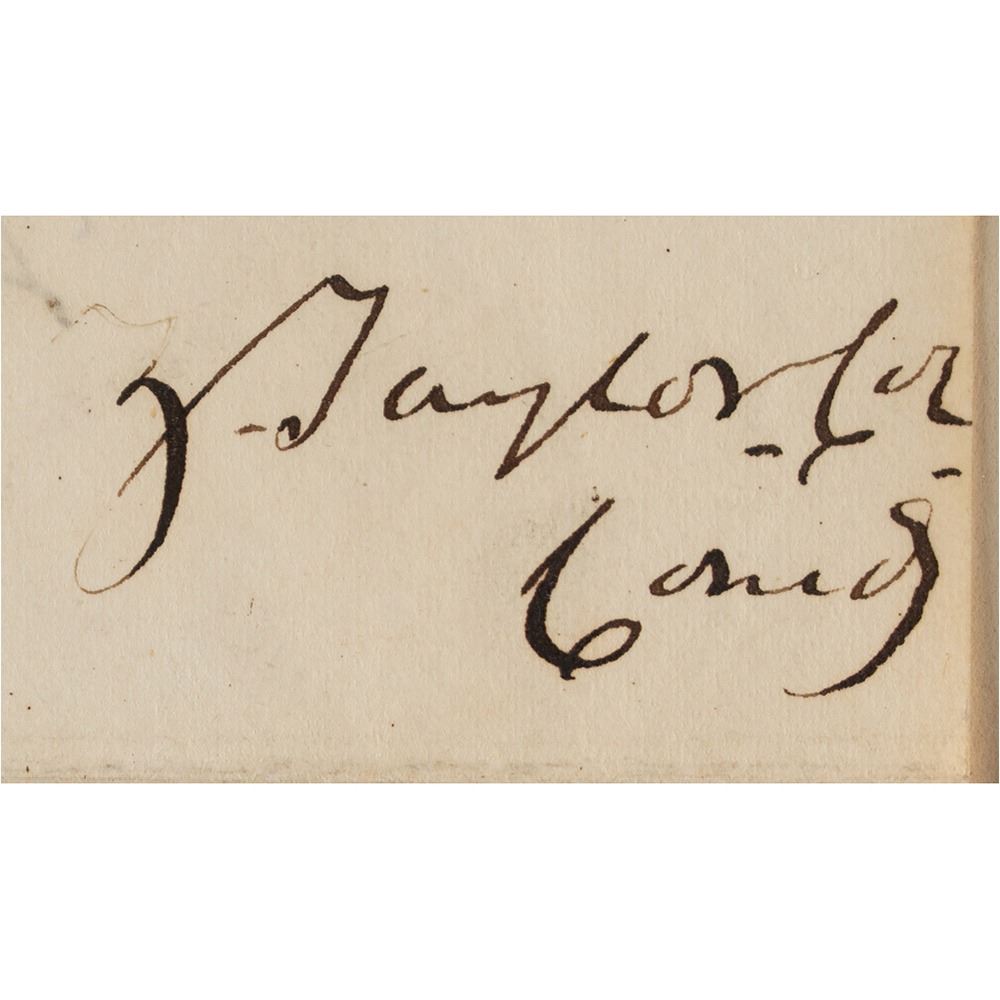 Z. Taylor Col
Comdg